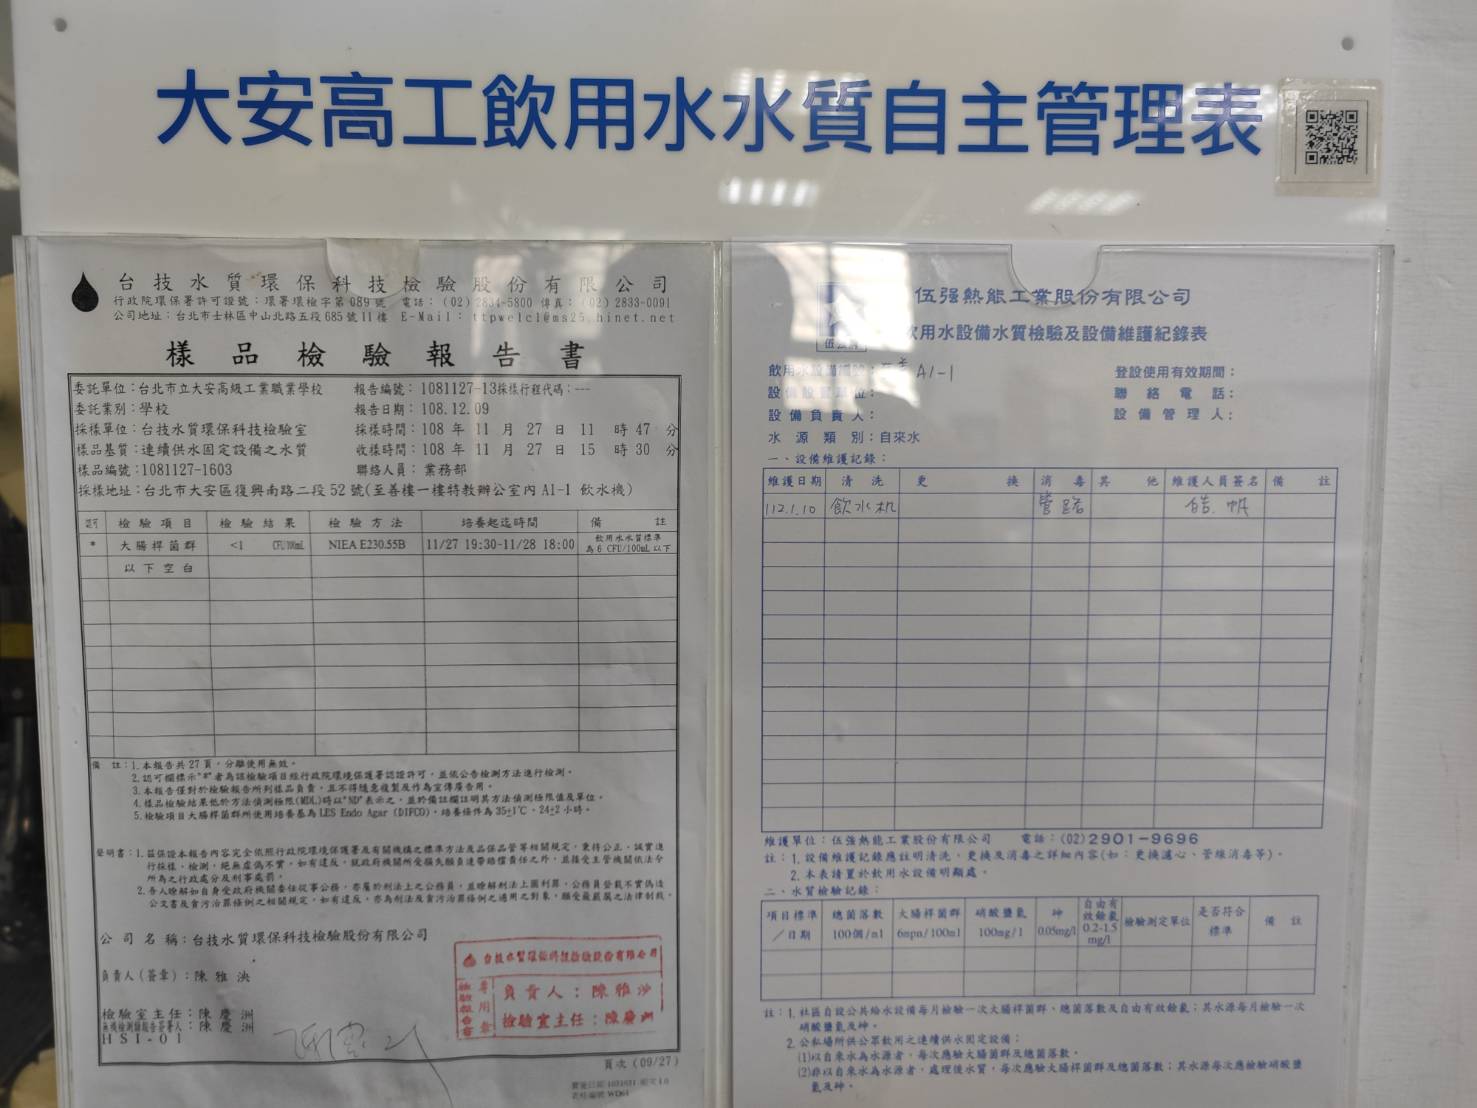 大安高工飲用水水質自主管理表
台技水質環保科技檢驗股份有限公司
行政院環保署許可證號：環署環檢字第089號 電話：(02) 2834-5800 傳真：(02) 2833-0091
公司地址：台北市士林區中山北路五段685號11樓 E-Mail： ttpwelcl@ms25.hinet.net
樣品檢驗報告書
委託單位：台北市立大安高級工業職業學校 報告編號：1081127-13採樣行程代碼：---
委託業別：學校 報告日期：108.12.09
採樣單位：台技水質環保科技檢驗室 採樣時間：108 年 11 月 27 日 11 時 47 分
樣品基質：連續供水固定設備之水質 收樣時間：108 年 11 月 27 日 15 時 30 分
樣品編號：1081127-1603 聯絡人員：業務部
採樣地址：台北市大安區復興南路二段52號(至善樓一樓特教辦公室內A1-1飲水機)
認可 檢驗項目 檢驗結果 檢驗方法 培養起迄時間 備註
* 大腸桿菌群 <1 CFU/100mL NIEA E230.55B 11/27 19:30-11/28 18:00 飲用水水質標準
為6 CFU/100mL以下
以下空白
備 註：1.本報告共27頁，分離使用無效。
2.認可欄標示"*"者為該檢驗項目經行政院環境保護署認證許可，並依公告檢測方法進行檢測。
3.本報告僅對於檢驗報告所列樣品負責，且不得隨意複製及作為宣傳廣告用。
4.樣品檢驗結果低於方法偵測極限(MDL)時以"ND"表示之，並於備註欄註明其方法偵測極限值及單位。
5.檢驗項目大腸桿菌群所使用培養基為LES Endo Agar (DIFCO)，培養條件為35±1℃、24±2小時。
聲明書：1.茲保證本報告內容完全依照行政院環境保護署及有關機構之標準方法及品保品管等相關規定，秉持公正、誠實進
行採樣、檢測，絕無虛偽不實，如有違反，就政府機關所受損失願負連帶賠償責任之外，並接受主管機關依法令
所為之行政處分及刑事處罰。
2.吾人瞭解如自身受政府機關委任從事公務，亦屬於刑法上之公務員，並瞭解刑法上圖利罪、公務員登載不實偽造
公文書及貪污治罪條例之相關規定，如有違反，亦為刑法及貪污治罪條例之適用之對象，願受最嚴厲之法律制裁。
公司名稱：台技水質環保科技檢驗股份有限公司
負責人(簽章)：陳雅泱
檢驗室主任：陳慶洲
無機檢測類報告簽署人：陳慶洲
HSI-01
台技水質環保科技檢驗股份有限公司
檢驗報告書
專用章
負責人：陳雅泱
檢驗室主任：陳慶洲
頁次 (09/27)
伍强熱能工業股份有限公司
飲用水設備水質檢驗及設備維護紀錄表
A1-1 登設使用有效期間：
聯絡電話：
設備負責人： 設備管理人：
水源類別：自來水
一、設備維護記錄：
維護日期 清洗 更換 消毒 其他 維護人員簽名 備註
112.1.10 飲水机 管路
維護單位：伍强熱能工業股份有限公司 電話：(02)2901-9696
註：1.設備維護記錄應註明清洗，更換及消毒之詳細內容(如：更換濾心、管線消毒等)。
2.本表請置於飲用水設備明顯處。
二、水質檢驗記錄：
項目標準／日期 總菌落數 100個/ml 大腸桿菌群 6mpn/100ml 硝酸鹽氮 100mg/l 砷 0.05mg/l 自由有效餘氯 0.2-1.5 mg/l 檢驗測定單位 是否符合標準 備註
註：1.社區自設公共給水設備每月檢驗一次大腸桿菌群、總菌落數及自由有效餘氯；其水源每月檢驗一次
硝酸鹽氮及砷。
2.公私場所供公眾飲用之連續供水固定設備：
(1)以自來水為水源者，每次應驗大腸菌群及總菌落數。
(2)非以自來水為水源者，處理後水質，每次應驗大腸桿菌群及總菌落數；其水源每次應檢驗硝酸鹽
氮及砷。